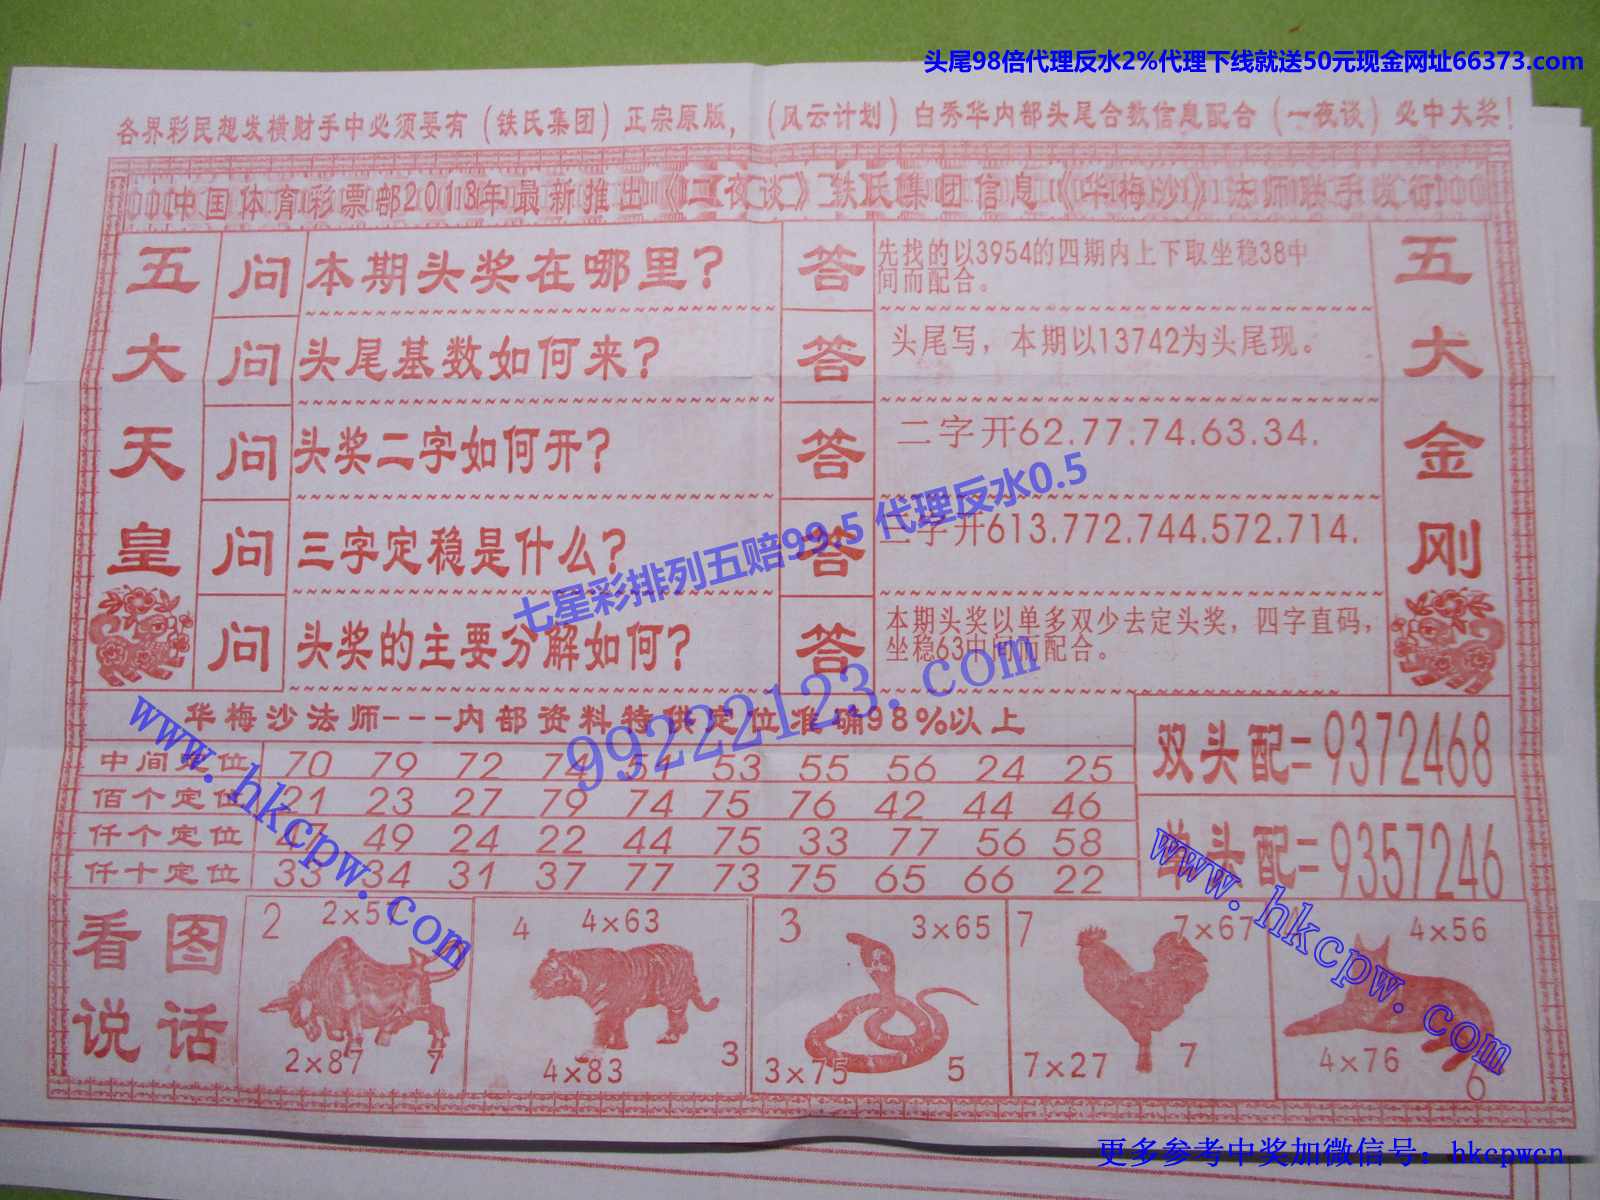 头尾98倍代理反水2%代理下线就送50元现金网址66373.com
各界彩民想发横财手中必须要有（铁氏集团）正宗原版，（风云计划）白秀华内部头尾合数信息配合（一夜谈）必中大奖！
中国体育彩票部2013年最新推出《二夜谈》铁氏集团信息《华梅沙》法师联手发行
五大天皇
问 本期头奖在哪里？
答 先找的以3954的四期内上下取坐稳38中
间而配合。
问 头尾基数如何来？
答 头尾写，本期以13742为头尾现。
问 头奖二字如何开？
答 二字开62.77.74.63.34.
问 三字定稳是什么？
答 三字开613.772.744.572.714.
问 头奖的主要分解如何？
答 本期头奖以单多双少去定头奖，四字直码，
坐稳63中间而配合。
五大金刚
七星彩排列五赔99.5 代理反水0.5
99222123.com
华梅沙法师---内部资料特供定位准确98%以上
中间定位 70 79 72 74 54 53 55 56 24 25
佰个定位 21 23 27 79 74 75 76 42 44 46
仟个定位 47 49 24 22 44 75 33 77 56 58
仟十定位 33 34 31 37 77 73 75 65 66 22
双头配=9372468
单头配=9357246
www.hkcpw.com
www.hkcpw.com
看图
说话
2 2×57
2×87 7
4 4×63
4×83 3
3 3×65
3×75 5
7 7×67
7×27 7
4×56
4×76 6
更多参考中奖加微信号：hkcpwcn